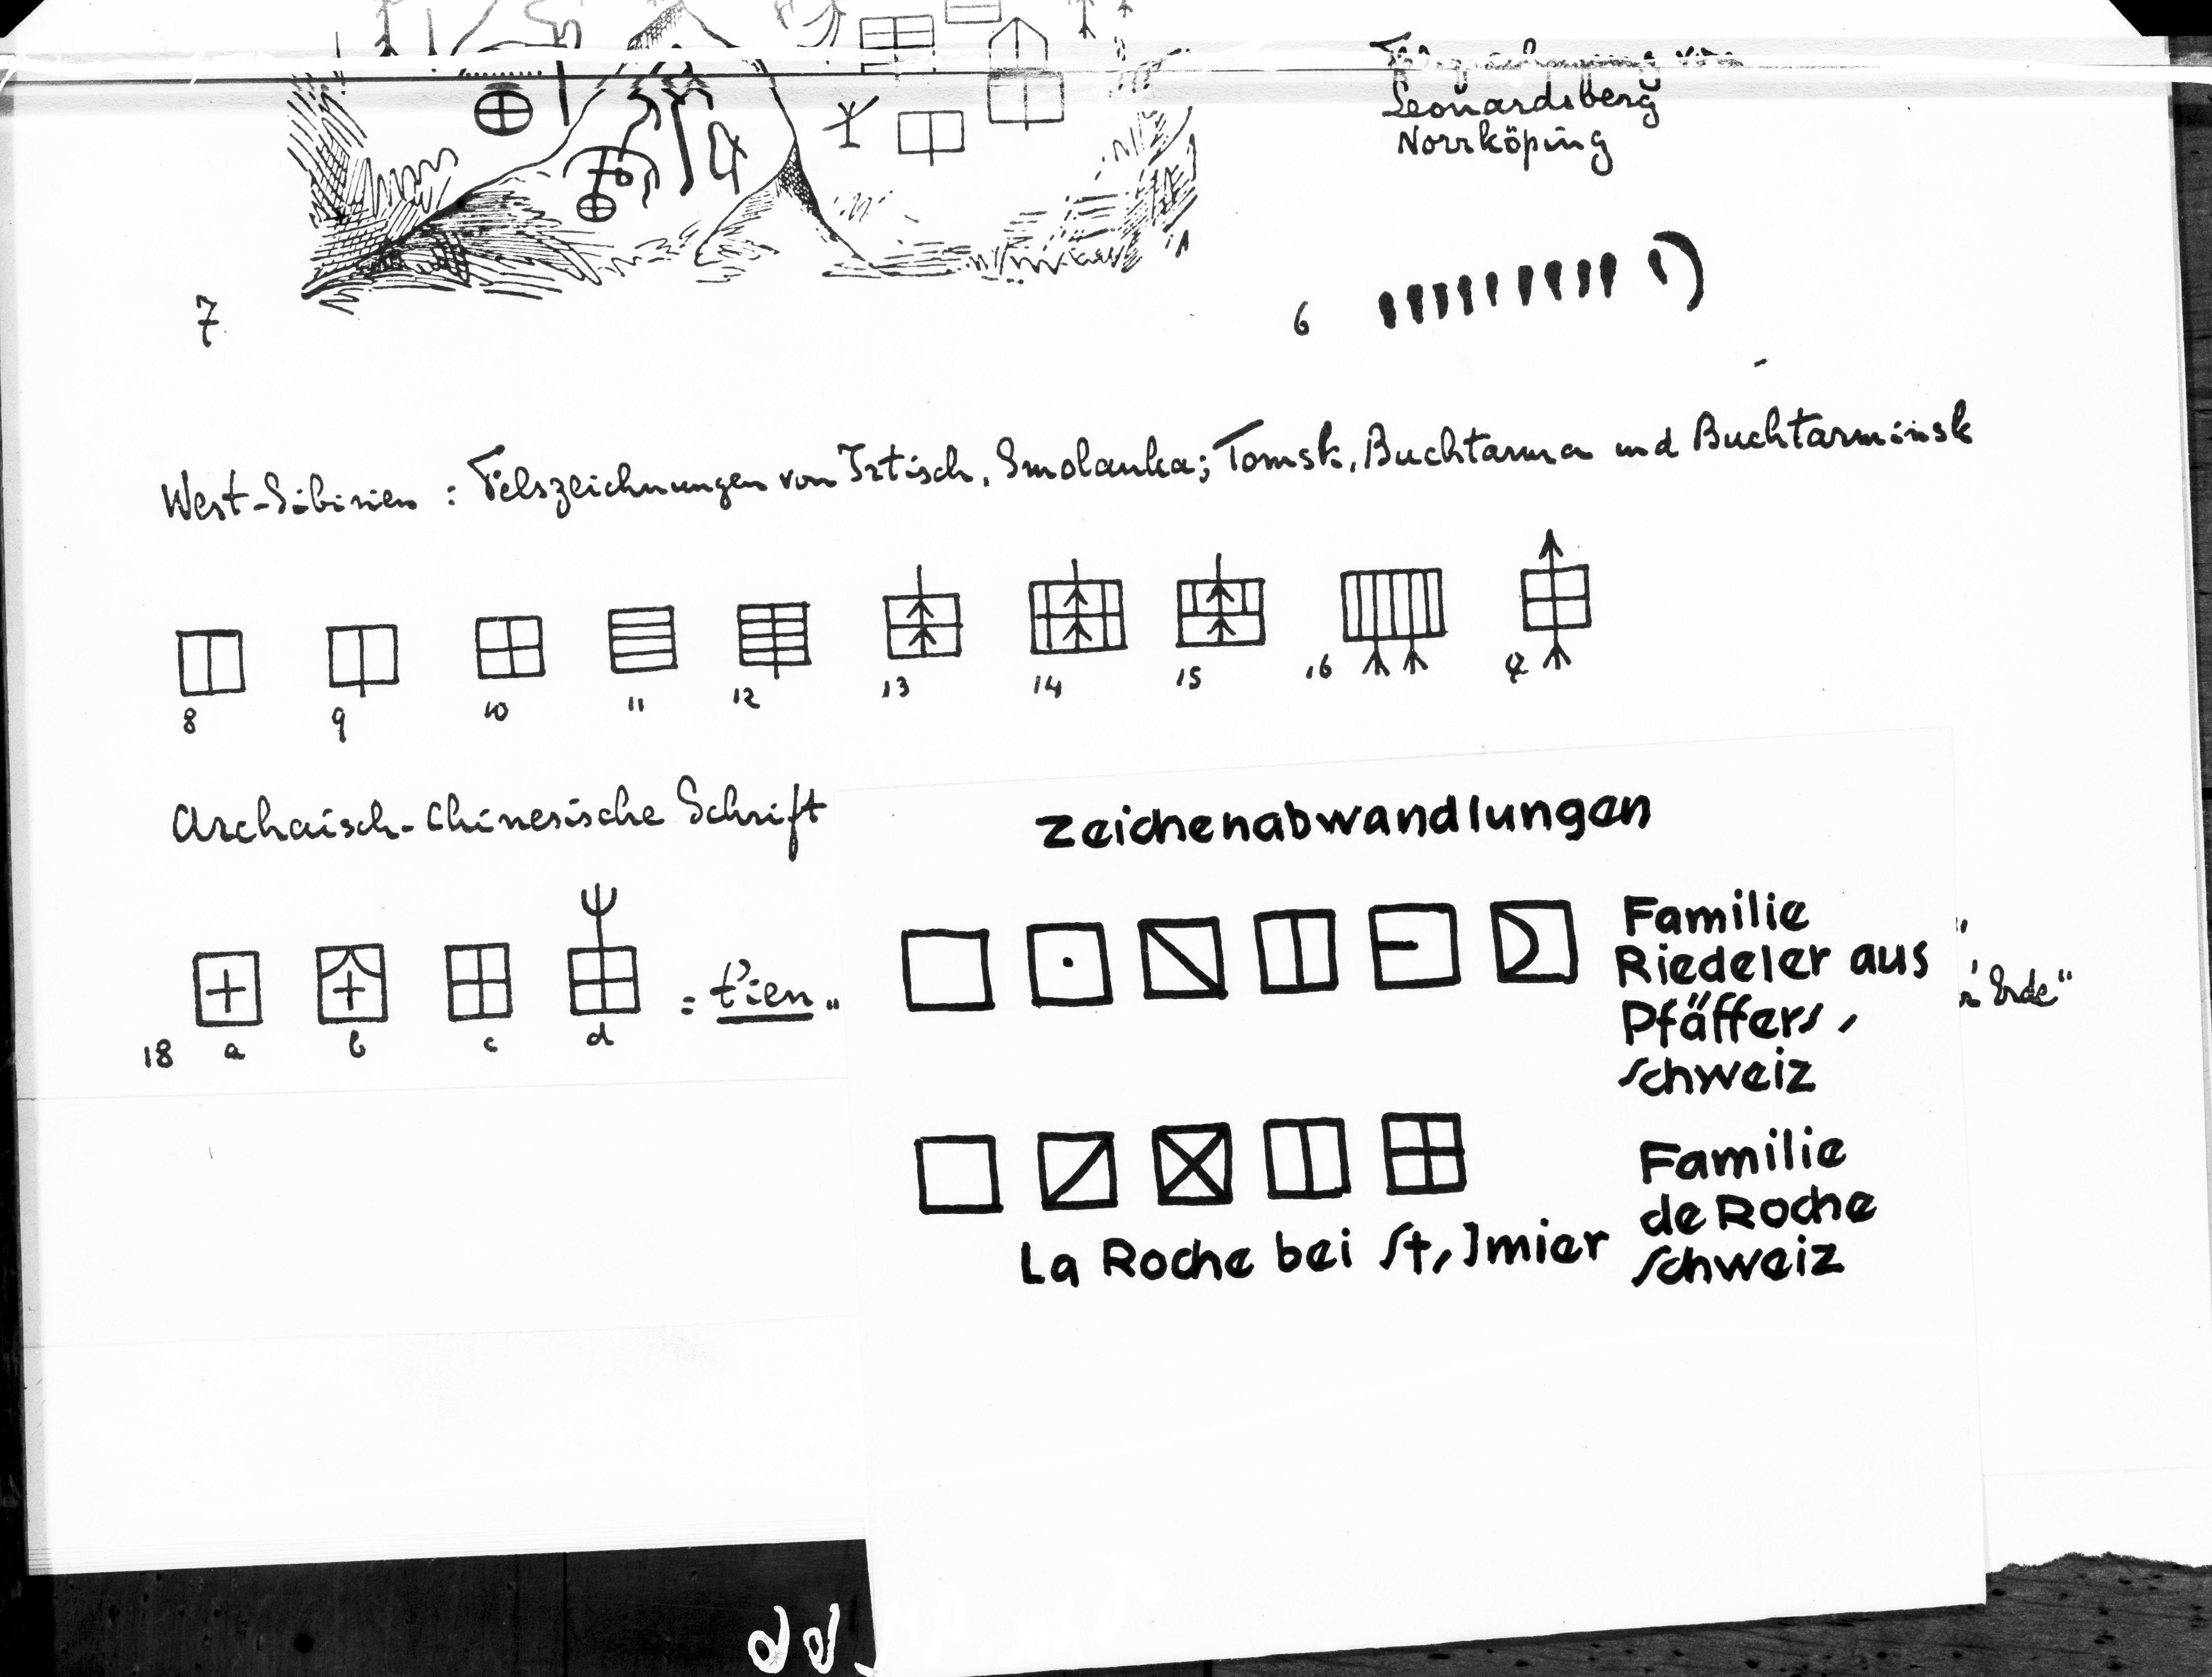 Leonardsberg
Norrköping
7
6
West-Sibirien : Felszeichnungen von Irtisch, Smolanka; Tomsk, Buchtarma und Buchtarminsk
8 9 10 11 12 13 14 15 16
Archaisch-Chinesische Schrift
18 a b c d = tien „
Erde“
Zeichenabwandlungen
Familie
Riedeler aus
Pfäffers,
Schweiz
Familie
de Roche
Schweiz
La Roche bei St, Imier